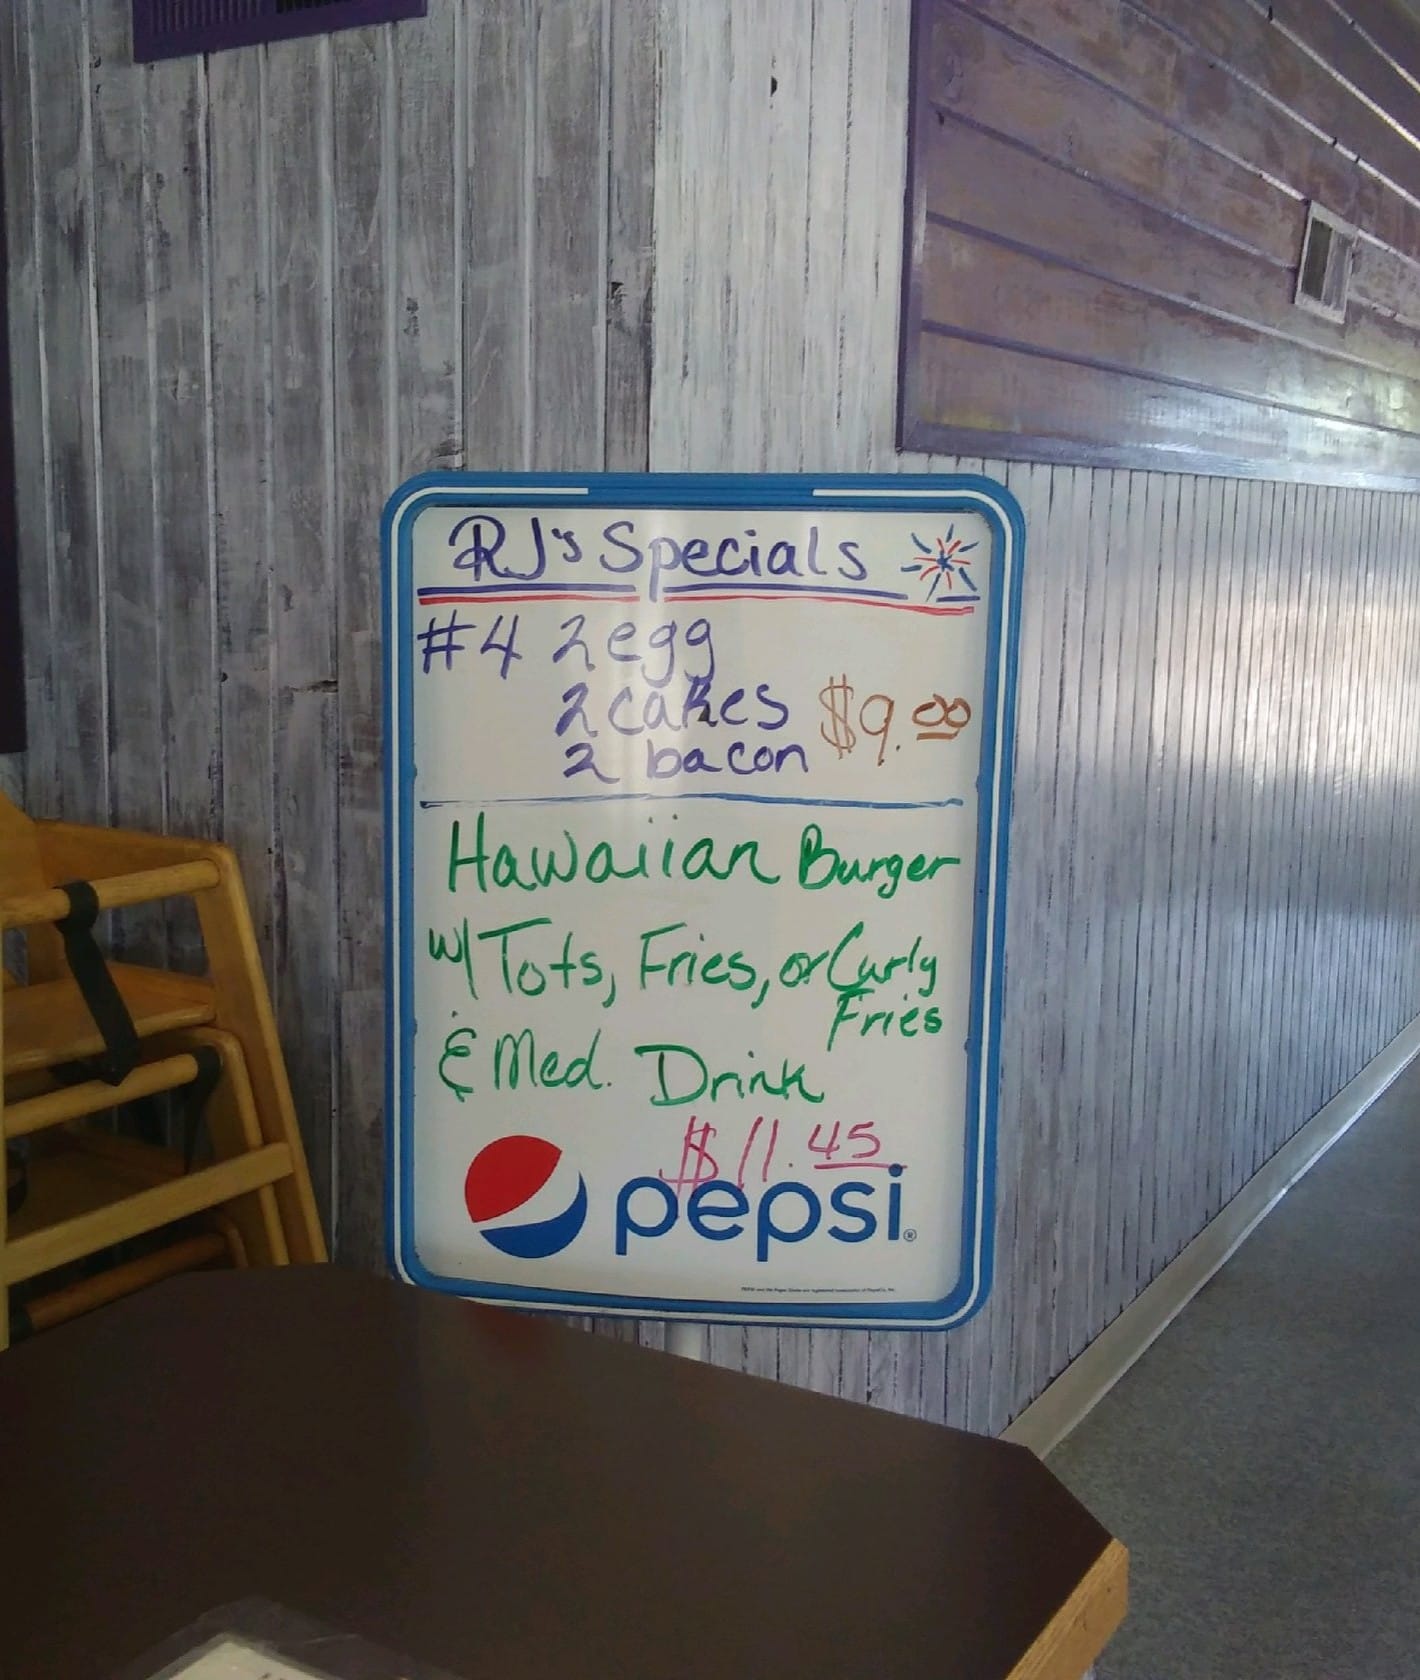 RJ's Specials
#4 2 egg
2 cakes $9.00
2 bacon
Hawaiian Burger
w/ Tots, Fries, or Curly
Fries
& Med. Drink
$11.45
pepsi®